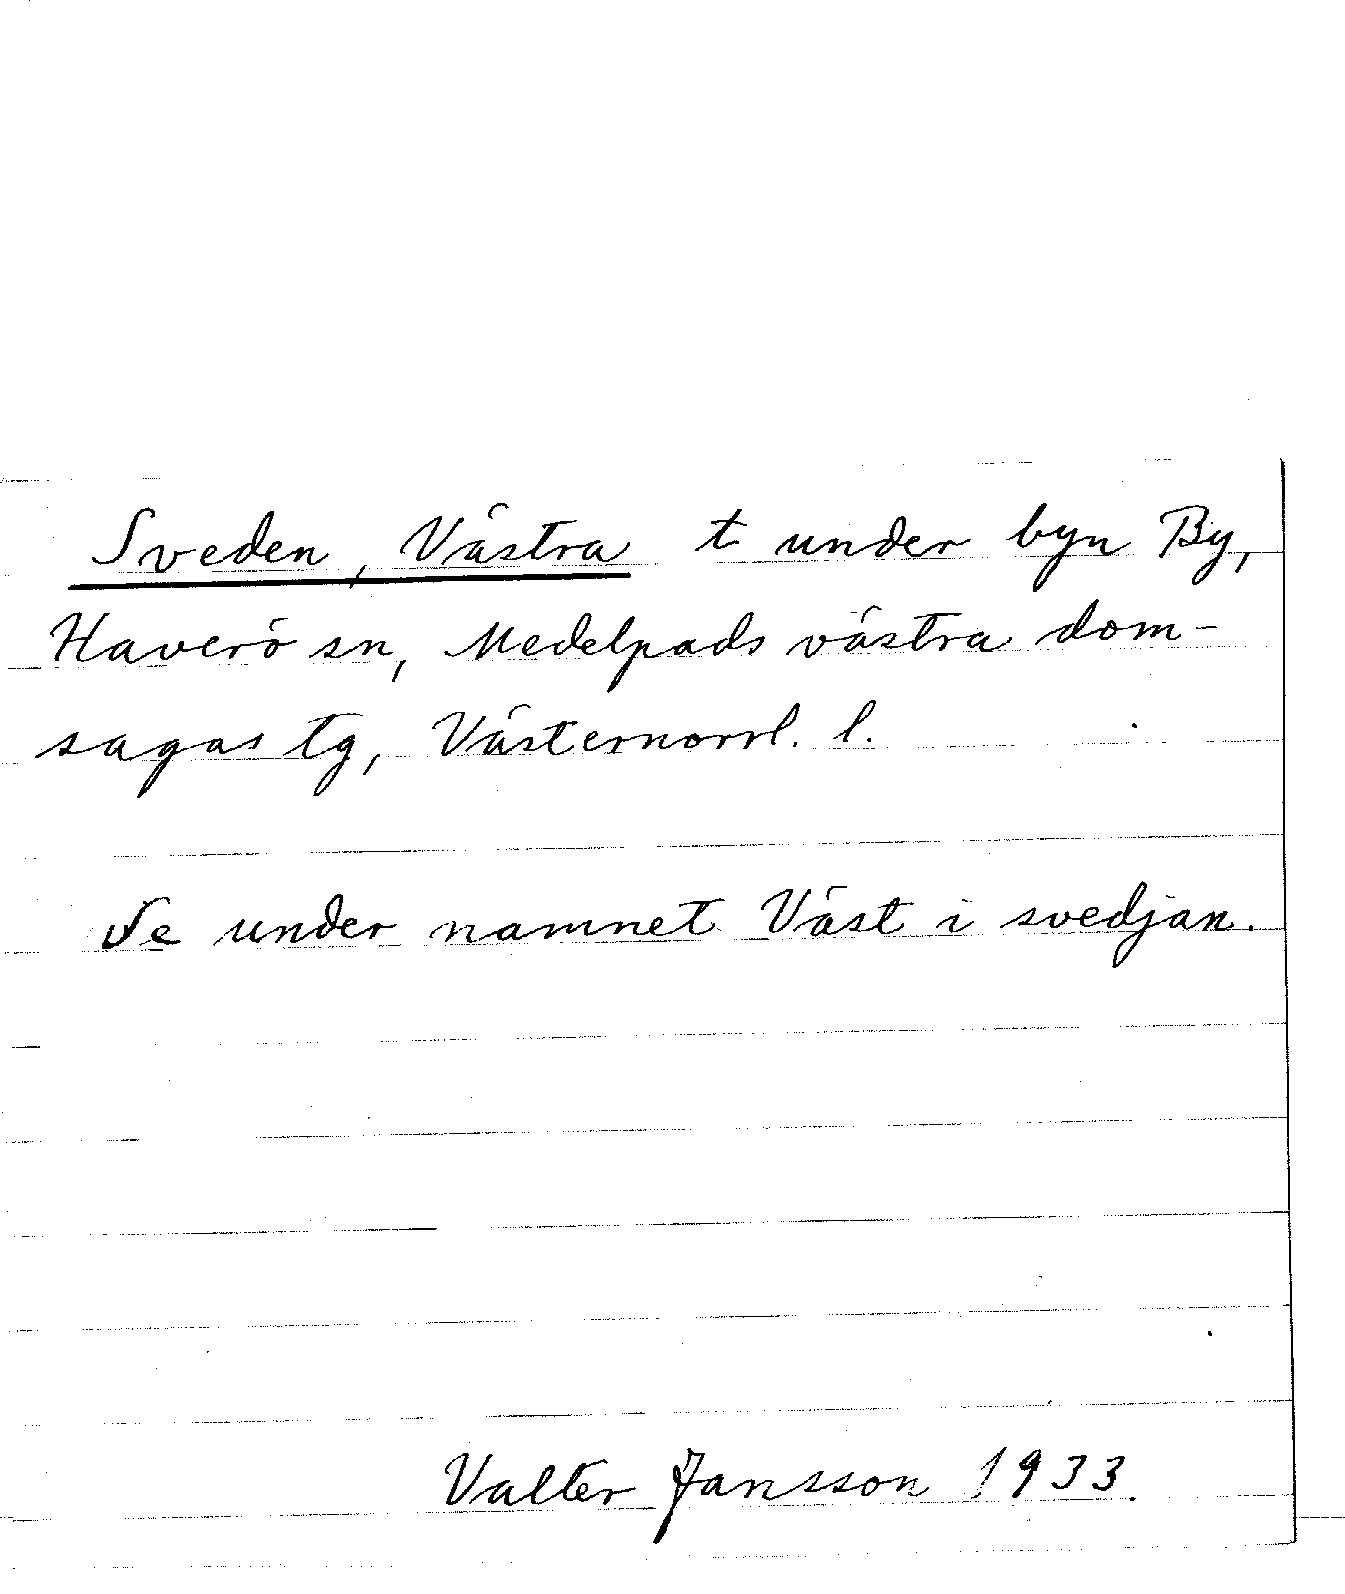 Sveden, Västra t under byn By,
Haverö sn, Medelpads västra dom-
sagas tg, Västernorrl. l.
Se under namnet Väst i svedjan.
Valter Jansson 1933.